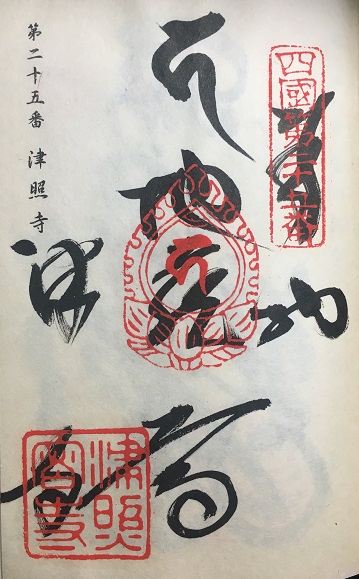 四國第二十五番
奉納
地蔵
津寺
津照
第二十五番 津照寺